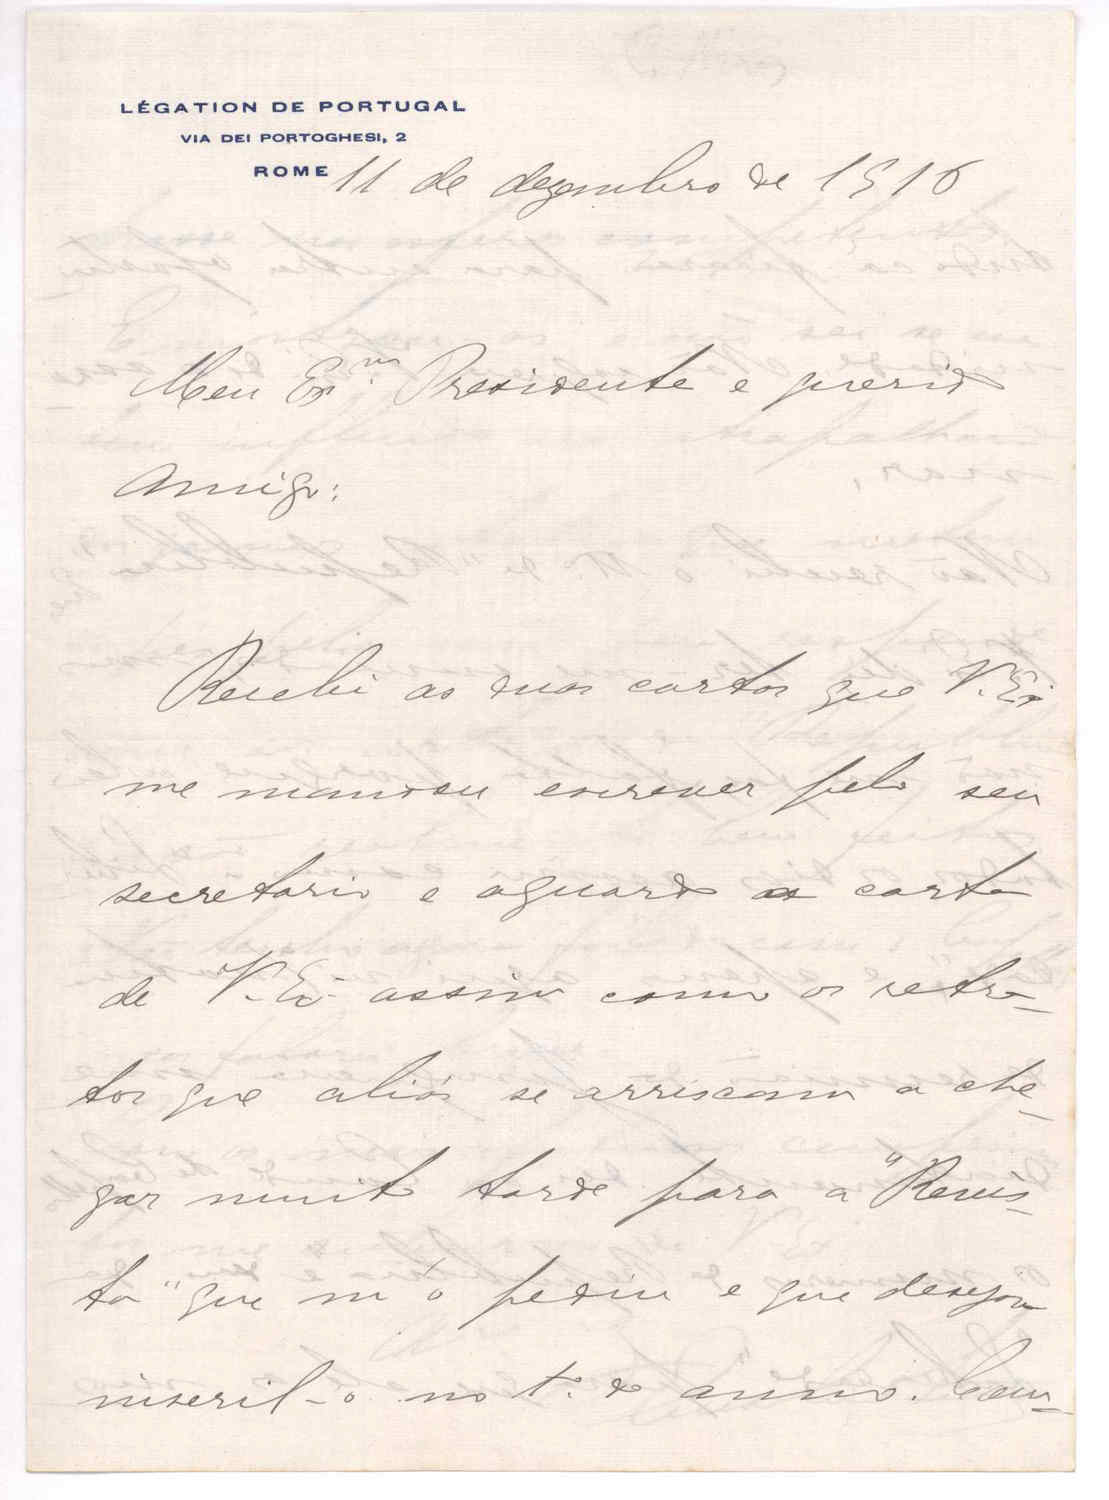 LÉGATION DE PORTUGAL
VIA DEI PORTOGHESI, 2
ROME 11 de dezembro de 1916
Meu Exmo. Presidente e querido
Amigo:
Recebi as duas cartas que V. Ex.
me mandou escrever pelo seu
secretario e aguardo a carta
de V. Ex. assim como os retra-
tos que aliás se arriscam a che-
gar muito tarde para a "Revis-
ta" que m'o pediu e que desejava
inseril-o no do anno. Com-